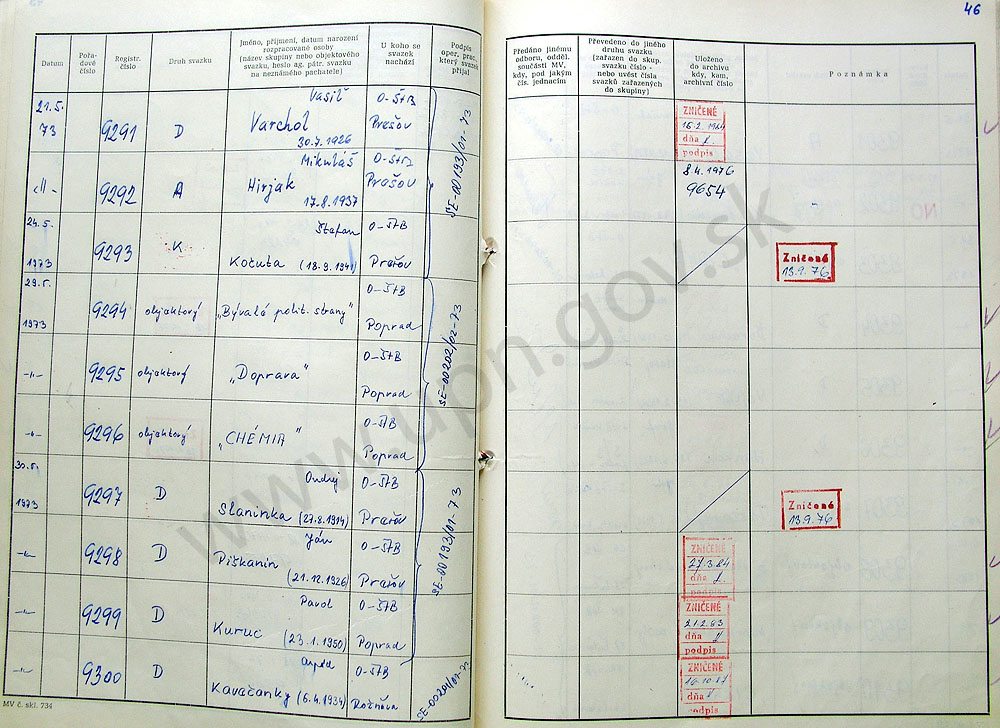 46
Datum
Pořa-
dové
číslo
Registr.
číslo
Druh svazku
Jméno, příjmení, datum narození
rozpracované osoby
(název skupiny nebo objektového
svazku, heslo ag. pátr. svazku
na neznámého pachatele)
U koho se
svazek
nachází
Podpis
oper. prac.,
který svazek
přijal
Předáno jinému
odboru, odděl.
součásti MV,
kdy, pod jakým
čís. jednacím
Převedeno do jiného
druhu svazku
(zařazen do skup.
svazku číslo -
nebo uvést čísla
svazků zařazených
do skupiny)
Uloženo
do archivu
kdy, kam,
archivní číslo
Poznámka
21.5.
73
9291
D
Vasiľ
Varchol
30.7.1926
O-ŠtB
Prešov
SE-00193/01-73
ZNIČENÉ
dňa
podpis
-"-
9292
A
Mikuláš
Hirjak
17.8.1937
O-ŠtB
Prešov
8.4.1976
9654
24.5.
1973
9293
K
Štefan
Kočuta (18.9.1941)
O-ŠtB
Prešov
Zničené
13.9.76
29.5.
1973
9294
objektový
„Bývalé polit. strany"
O-ŠtB
Poprad
SE-00202/02-73
-"-
9295
objektový
„Doprava"
O-ŠtB
Poprad
-"-
9296
objektový
„CHÉMIA"
O-ŠtB
Poprad
30.5.
1973
9297
D
Ondrej
Slaninka (27.8.1914)
O-ŠtB
Prešov
SE-00193/01-73
Zničené
13.9.76
-"-
9298
D
Ján
Piškanin
(21.12.1926)
O-ŠtB
Prešov
ZNIČENÉ
27.3.84
dňa
podpis
-"-
9299
D
Pavol
Kuruc (23.1.1950)
O-ŠtB
Poprad
ZNIČENÉ
21.2.83
dňa
podpis
-"-
9300
D
Arpád
Kavačanky (6.4.1934)
O-ŠtB
Rožňava
ZNIČENÉ
dňa
podpis
MV č. skl. 734
www.upn.gov.sk